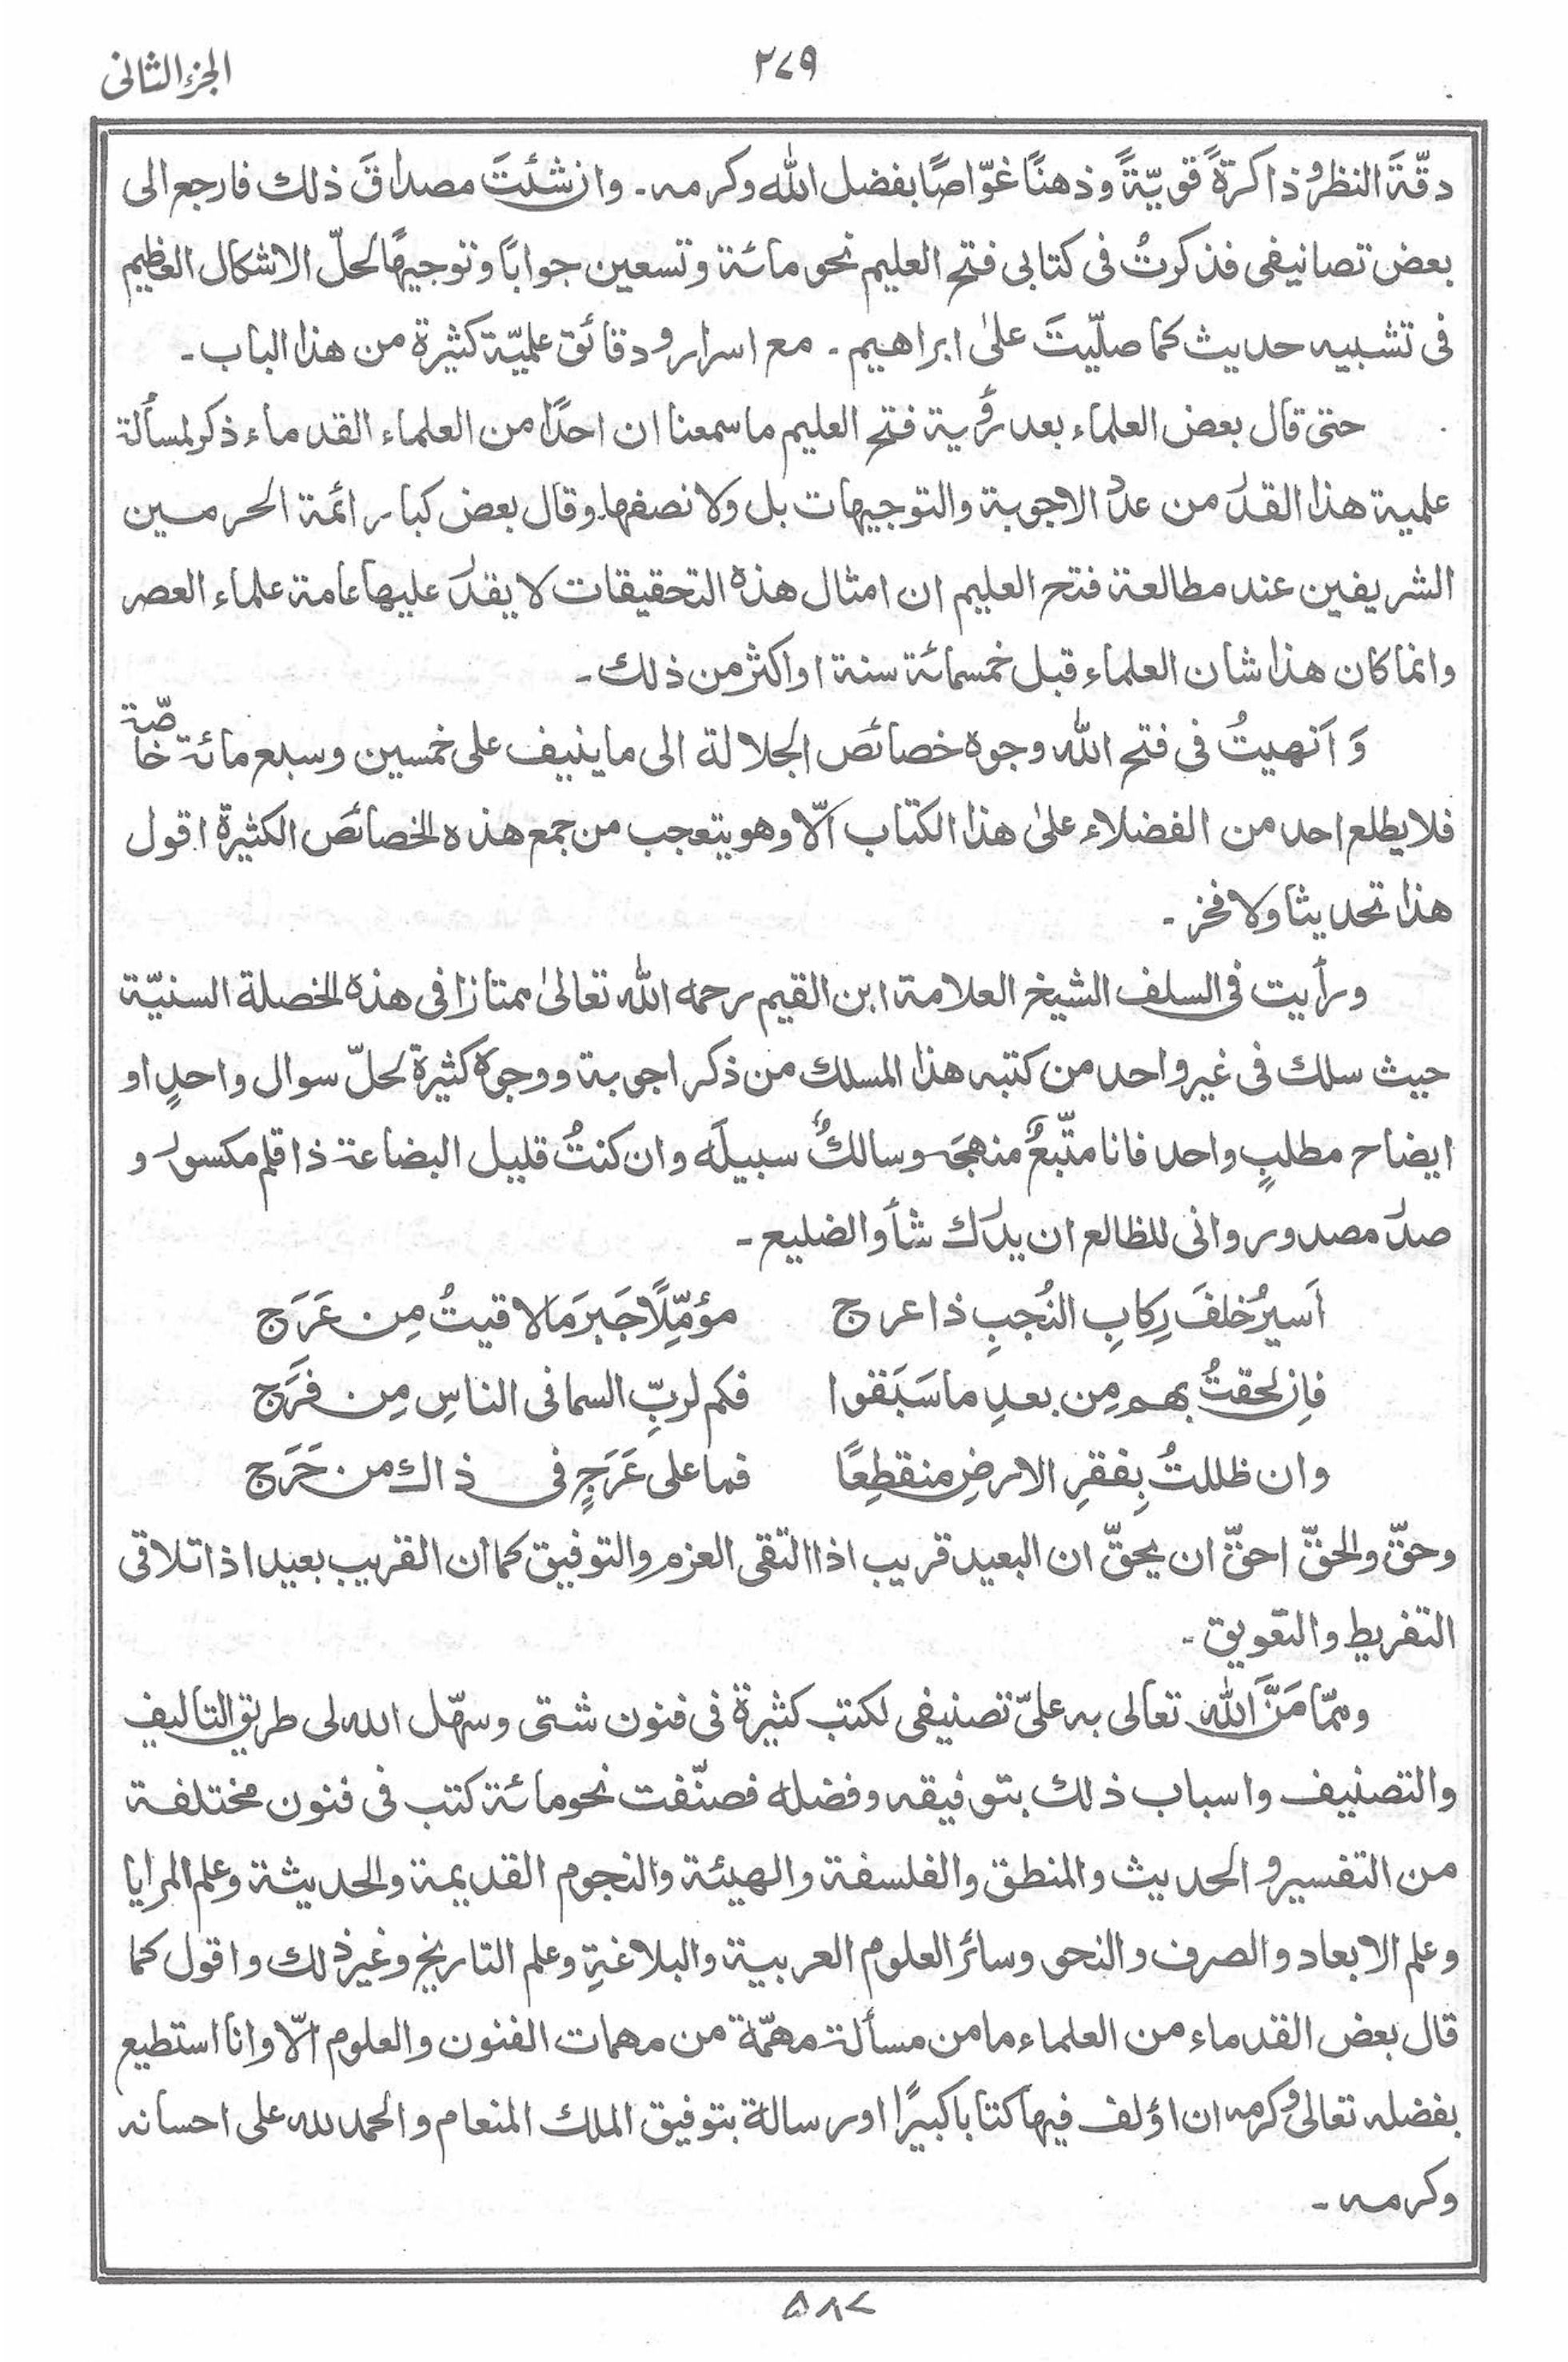 الجزء الثانی
٢٧٩
دقّةَ النظر و ذاكرةً قويّةً وذهنًا غوّاصًا بفضل الله وكرمه ۔ وان شئتَ مصداقَ ذلك فارجع الى
بعض تصانيفى فذكرتُ فى كتابى فتح العليم نحو مائة وتسعين جوابًا وتوجيهًا لحلّ الاشكال العظيم
فى تشبيه حديث كما صلّيتَ علىٰ ابراهيم ۔ مع اسرار و دقائق علميّة كثيرة من هذا الباب ۔
حتى قال بعض العلماء بعد رؤية فتح العليم ما سمعنا ان احدًا من العلماء القدماء ذكر لمسألة
علمية هذا القدر من عدد الاجوبة والتوجيهات بل ولا نصفها. وقال بعض كبار ائمة الحرمين
الشريفين عند مطالعة فتح العليم ان امثال هذه التحقيقات لا يقدر عليها عامة علماء العصر
وانما كان هذا شان العلماء قبل خمسمائة سنة او اكثر من ذلك ۔
وَ اَنهيتُ فى فتح الله وجوه خصائص الجلالة الى ما ينيف على خمسين وسبع مائة خاصّة
فلا يطلع احد من الفضلاء علىٰ هذا الكتاب الّا وهو يتعجب من جمع هذه الخصائص الكثيرة اقول
هذا تحديثا ولا فخر ۔
ورأيت فى السلف الشيخ العلامة ابن القيم رحمه الله تعالىٰ ممتازا فى هذه الخصلة السنيّة
حيث سلك فى غير واحد من كتبه هذا المسلك من ذكر اجوبة ووجوه كثيرة لحلّ سوال واحدٍ او
ايضاح مطلبٍ واحد فانا متّبعٌ منهجَه وسالكٌ سبيلَه وان كنتُ قليل البضاعة ذا قلم مكسور و
صدر مصدور وانى للظالع ان يدرك شأو الضليع ۔
اَسيرُ خلفَ رِكابِ النُجبِ ذا عرج مؤمّلًا جَبرَ ما لاقيتُ مِن عَرَج
فاِن لحقتُ بهم مِن بعدِ ما سَبَقوا فكم لربِّ السما فى الناسِ مِن فَرَج
وان ظللتُ بِفقرِ الارضِ منقطِعًا فما على عَرَجٍ فى ذاك من حَرَج
وحقّ والحقّ احقّ ان يحقّ ان البعيد قريب اذا التقى العزم والتوفيق كما ان القريب بعيد اذا تلاقى
التفريط والتعويق ۔
وممّا مَنَّ الله تعالى به علىّ تصنيفى لكتب كثيرة فى فنون شتى وسهّل الله لى طريق التاليف
والتصنيف واسباب ذلك بتوفيقه وفضله فصنّفت نحو مائة كتب فى فنون مختلفة
من التفسير و الحديث والمنطق والفلسفة والهيئة والنجوم القديمة والحديثة وعلم المرايا
وعلم الابعاد والصرف والنحو وسائر العلوم العربية والبلاغةِ وعلم التاريخ وغير ذلك واقول كما
قال بعض القدماء من العلماء ما من مسألة مهمّة من مهمات الفنون والعلوم الّا وانا استطيع
بفضله تعالىٰ وكرمه ان اؤلف فيها كتابا كبيرًا او رسالة بتوفيق الملك المنعام والحمد لله على احسانه
وكرمه ۔
٥٨٢